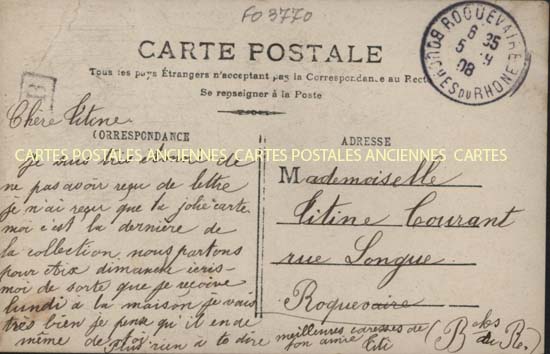 FO 3770
CARTE POSTALE
Tous les pays Étrangers n'acceptent pas la Correspondance au Recto
Se renseigner à la Poste
ROQUEVAIRE
BOUCHES DU RHONE
6 35
5
08
B
CORRESPONDANCE
ADRESSE
CARTES POSTALES ANCIENNES CARTES POSTALES ANCIENNES CARTES
Chère Titine
Je suis très de
ne pas avoir reçu de lettre
je n'ai reçu que ta jolie carte
moi c'est la dernière de
la collection nous partons
pour Aix dimanche
moi de sorte que je reçoive
lundi à la maison je vais
très bien je pense qu'il en e
même de toi
Plus rien à te dire meilleures caresses de
ton amie Titi
Mademoiselle
Titine Courant
rue Longue
Roquevaire
(B du R.)